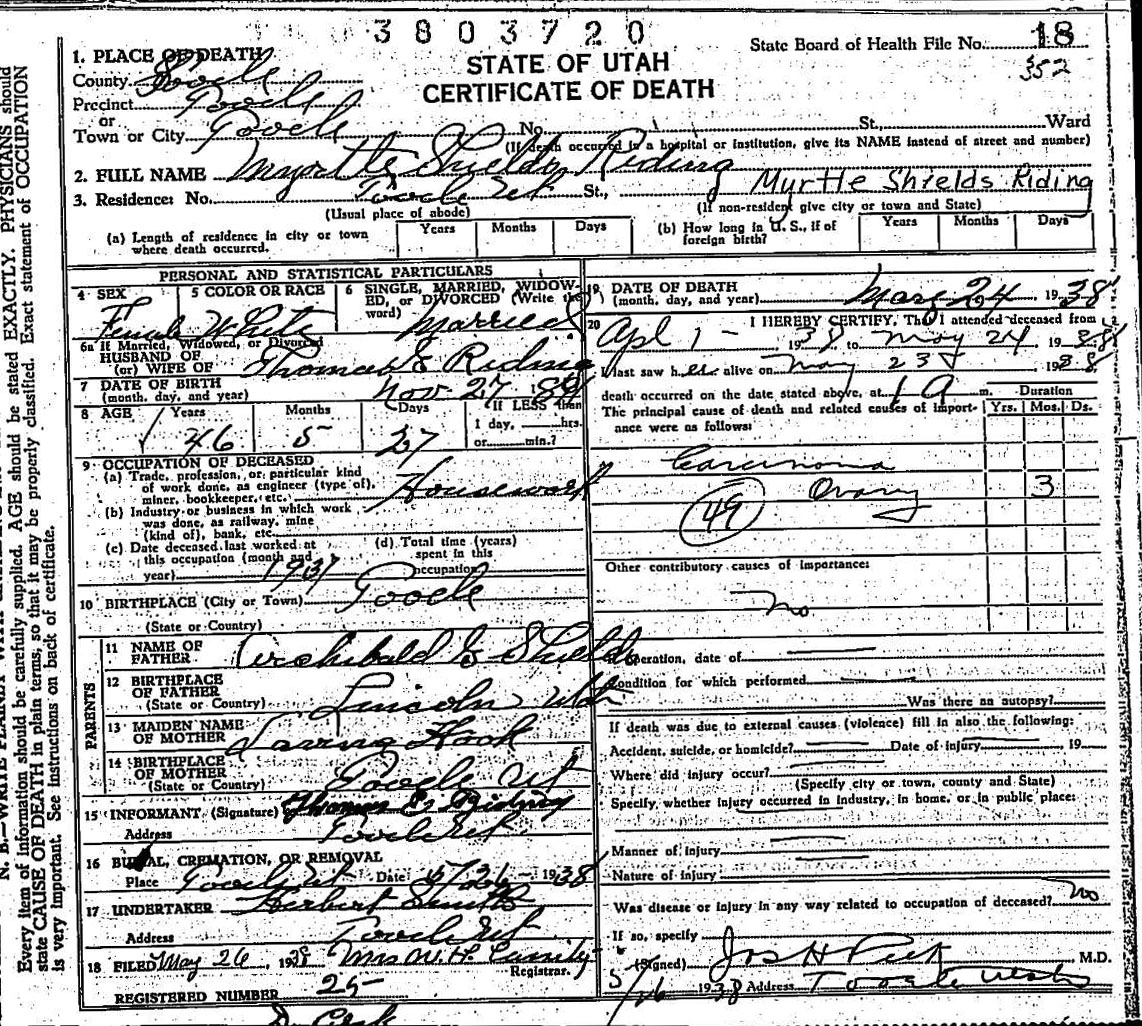 3803720
State Board of Health File No. 18
352
STATE OF UTAH
CERTIFICATE OF DEATH
1. PLACE OF DEATH
County Tooele
Precinct Tooele
or
Town or City Tooele No. St., Ward
(If death occurred in a hospital or institution, give its NAME instead of street and number)
2. FULL NAME Myrtle Shields Riding
Myrtle Shields Riding
3. Residence: No. Tooele Ut St.,
(Usual place of abode) (If non-resident give city or town and State)
(a) Length of residence in city or town where death occurred. Years Months Days
(b) How long in U. S., if of foreign birth? Years Months Days
PERSONAL AND STATISTICAL PARTICULARS
4 SEX 5 COLOR OR RACE 6 SINGLE, MARRIED, WIDOWED, or DIVORCED (Write the word)
Female White Married
6a If Married, Widowed, or Divorced
HUSBAND OF
(or) WIFE OF Thomas E Riding
7 DATE OF BIRTH
(month, day, and year) Nov 27 18
8 AGE Years Months Days If LESS than
46 5 27 1 day, hrs.
or min.?
9 OCCUPATION OF DECEASED
(a) Trade, profession, or particular kind
of work done, as engineer (type of),
miner, bookkeeper, etc. Housework
(b) Industry or business in which work
was done, as railway, mine
(kind of), bank, etc.
(c) Date deceased last worked at
this occupation (month and
year) 1937
(d) Total time (years)
spent in this
occupation
10 BIRTHPLACE (City or Town) Tooele
(State or Country)
PARENTS
11 NAME OF
FATHER Archibald G Shields
12 BIRTHPLACE
OF FATHER
(State or Country) Lincoln Utah
13 MAIDEN NAME
OF MOTHER Hook
14 BIRTHPLACE
OF MOTHER
(State or Country) Tooele Ut
15 INFORMANT (Signature) Thomas E. Riding
Address Tooele Ut
16 BURIAL, CREMATION, OR REMOVAL
Place Tooele Ut Date 5/26 - 1938
17 UNDERTAKER Herbert Smith
Address Tooele Ut
18 FILED May 26, 1938 Mrs W. H. Cassity
Registrar.
REGISTERED NUMBER 25
19 DATE OF DEATH
(month, day, and year) May 24 1938
20 I HEREBY CERTIFY, That I attended deceased from
Apl 1 - 1938 to May 24 1938
I last saw her alive on May 23 1938
death occurred on the date stated above, at 1 A m.
Duration
The principal cause of death and related causes of importance were as follows: Yrs. Mos. Ds.
Carcinoma
Ovary 3
49
Other contributory causes of importance:
No
If operation, date of
Condition for which performed
Was there an autopsy?
If death was due to external causes (violence) fill in also the following:
Accident, suicide, or homicide? Date of injury 19
Where did injury occur?
(Specify city or town, county and State)
Specify whether injury occurred in industry, in home, or in public place:
Manner of injury
Nature of injury
Was disease or injury in any way related to occupation of deceased? no
If so, specify
(Signed) Jos H Peck M.D.
5/26 1938 Address Tooele Utah
Every item of information should be carefully supplied. AGE should be stated EXACTLY. PHYSICIANS should
state CAUSE OF DEATH in plain terms, so that it may be properly classified. Exact statement of OCCUPATION
is very important. See instructions on back of certificate.